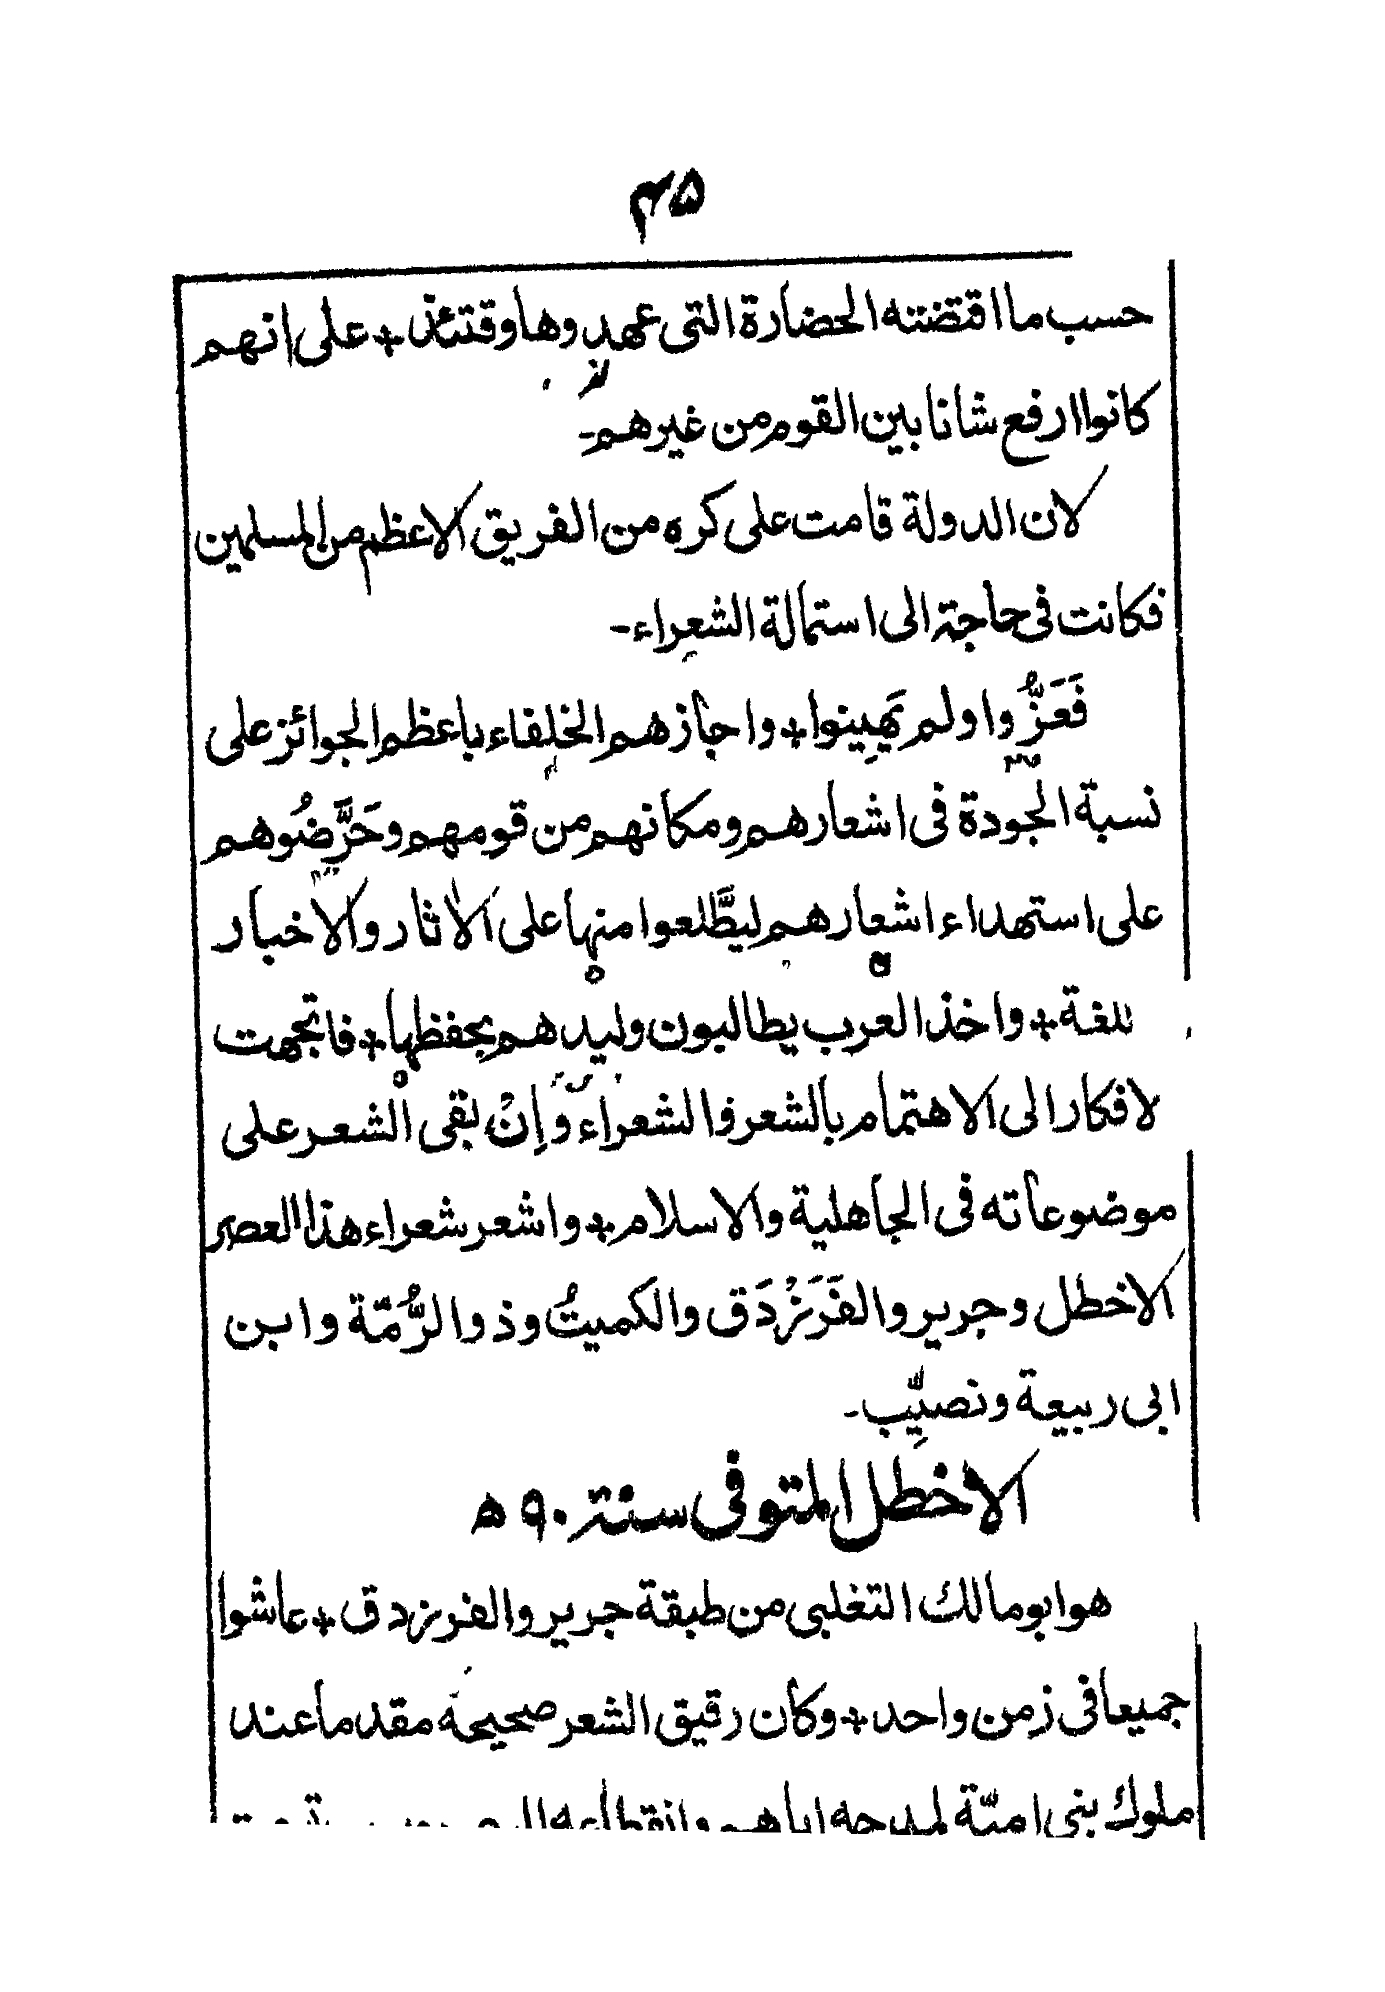 ۴۵
حسب ما اقتضته الحضارة التى عهدوها وقتئذ + على انهم
كانوا ارفع شانا بين القوم من غيرهم -
لان الدولة قامت على كره من الفريق الاعظم من المسلمين
فكانت فى حاجة الى استمالة الشعراء -
فَعَزُّوا ولم يَهِينوا + واجازهم الخلفاء باعظم الجوائز على
نسبة الجودة فى اشعارهم ومكانهم من قومهم وحَرَّضُوهم
على استهداء اشعارهم ليطَّلعوا منها على الاثار والاخبار
للغة + واخذ العرب يطالبون وليدهم بحفظها + فاتجهت
لافكار الى الاهتمام بالشعر فالشعراء وَاِنْ بقى الشعر على
موضوعاته فى الجاهلية والاسلام + واشعر شعراء هذا العصر
الاخطل وجرير والفَرَزْدَق والكميتُ وذو الرُّمّة وابن
ابى ربيعة ونصيِّب -
الاخطل المتوفى سنة ٩٠ ه
هو ابو مالك التغلبى من طبقة جرير والفرزدق + عاشوا
جميعا فى زمن واحد + وكان رقيق الشعر صحيحه مقدما عند
ملوك بنى اميّة لمدحه اياهم وانقطاعه اليهم